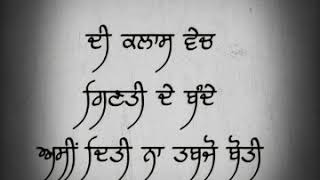 ਦੀ ਕਲਾਸ ਵੇਚ
ਗਿਣਤੀ ਦੇ ਬੰਦੇ
ਅਸੀਂ ਦਿਤੀ ਨਾ ਤਬਜੋ ਬੋਤੀ